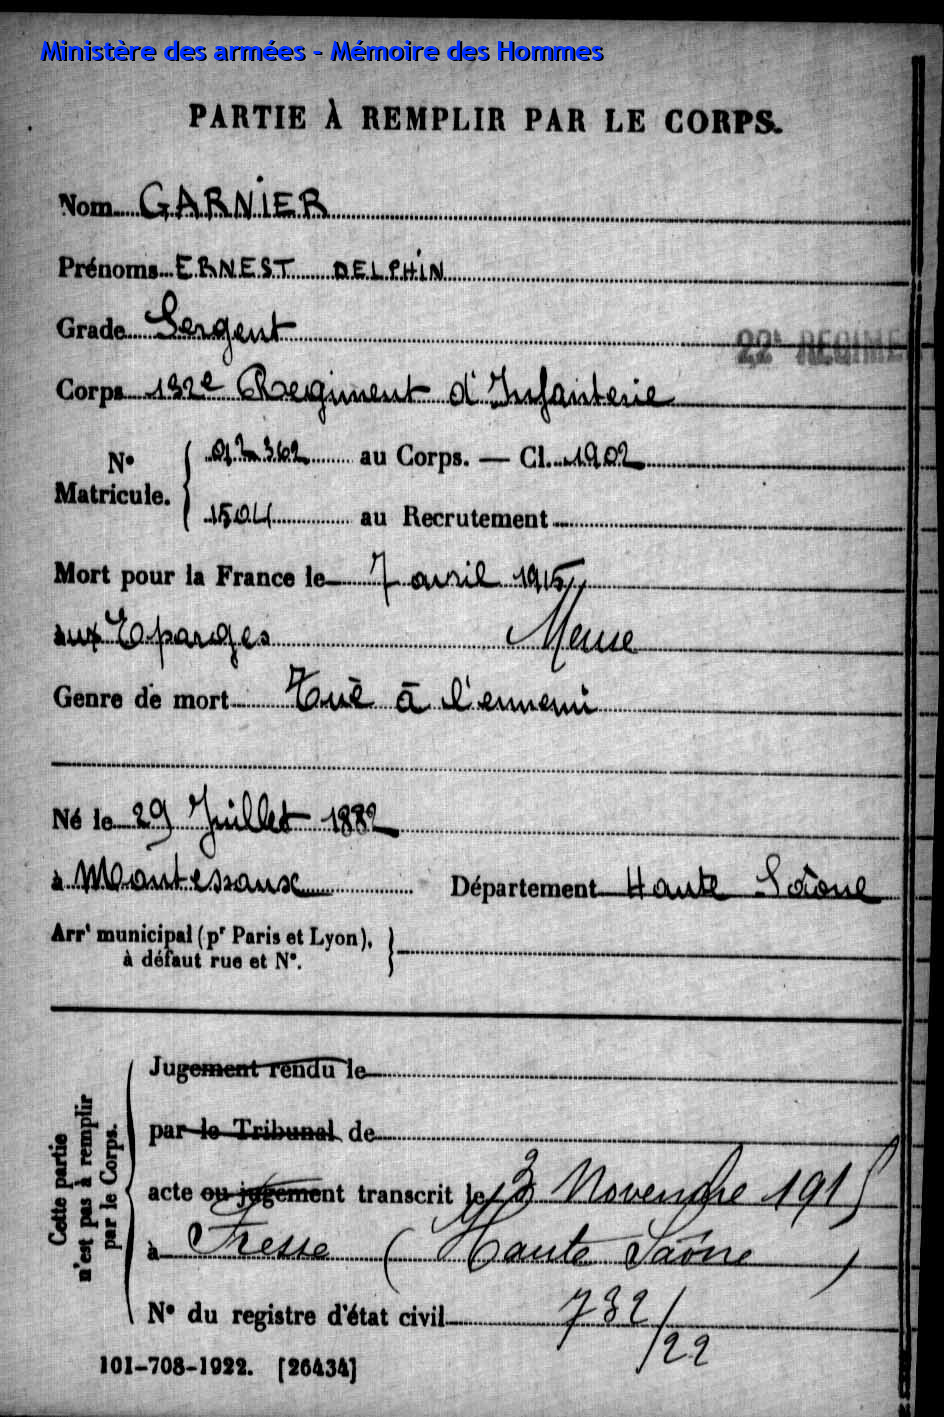 Ministère des armées - Mémoire des Hommes
PARTIE À REMPLIR PAR LE CORPS.
Nom GARNIER
Prénoms ERNEST DELPHIN
Grade Sergent
22e REGIME
Corps 132e Regiment d'Infanterie
No Matricule. { 012362 au Corps. — Cl. 1902
1504 au Recrutement
Mort pour la France le 7 avril 1915
aux Eparges Meuse
Genre de mort Tué à l'ennemi
Né le 29 Juillet 1882
à Montessaux Département Haute Saône
Arrt municipal (pr Paris et Lyon), à défaut rue et No. }
Cette partie n'est pas à remplir par le Corps.
Jugement rendu le
par le Tribunal de
acte ou jugement transcrit le 3 Novembre 1915
à Fresse (Haute Saône)
No du registre d'état civil 732/22
101-708-1922. [26434]